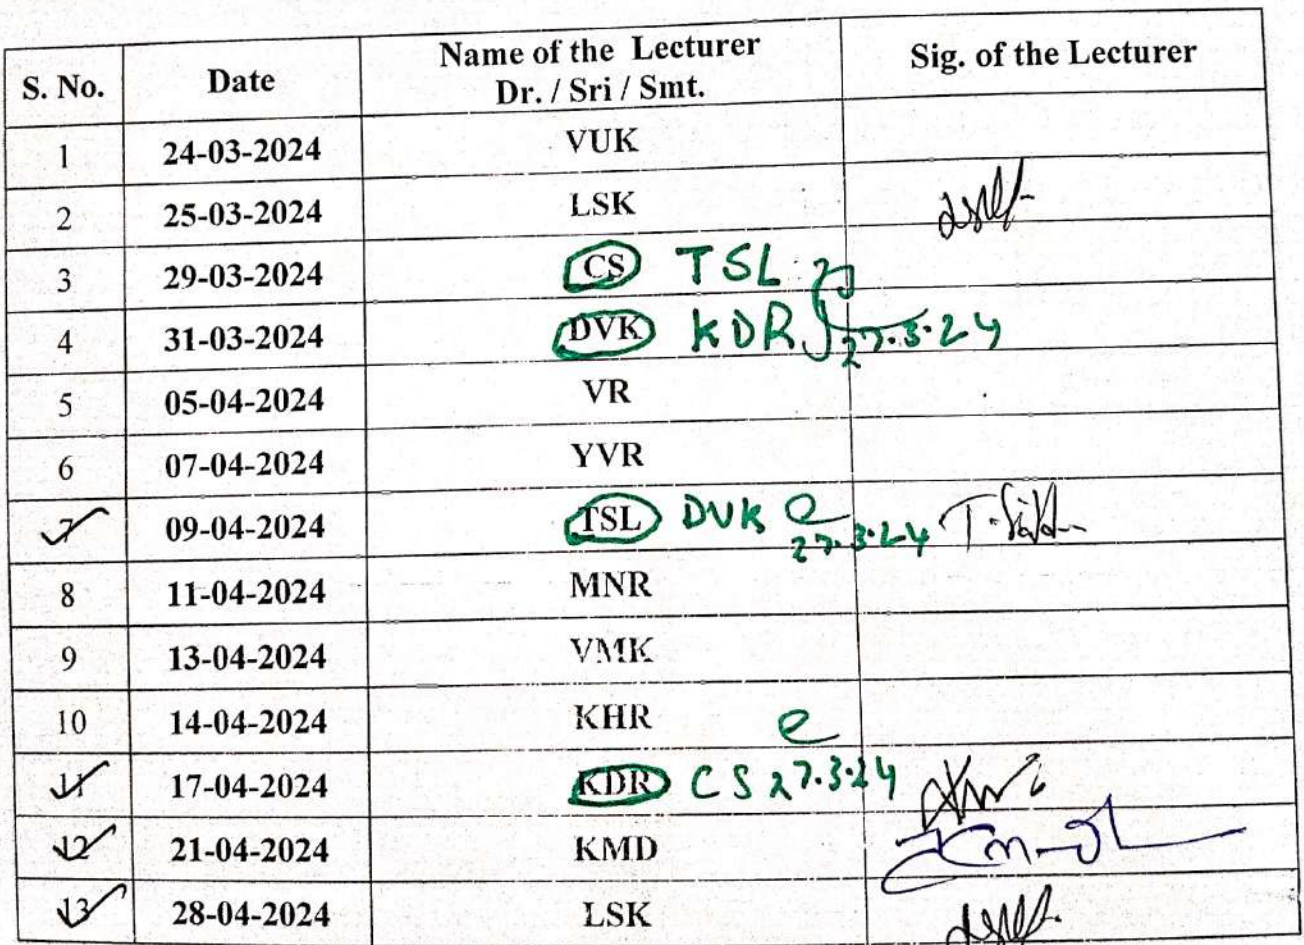 S. No. Date Name of the Lecturer Dr. / Sri / Smt. Sig. of the Lecturer
1 24-03-2024 VUK
2 25-03-2024 LSK
3 29-03-2024 CS TSL
4 31-03-2024 DVK KDR 27.3.24
5 05-04-2024 VR
6 07-04-2024 YVR
7 09-04-2024 TSL DVK 27.3.24
8 11-04-2024 MNR
9 13-04-2024 VMK
10 14-04-2024 KHR
11 17-04-2024 KDR CS 27.3.24
12 21-04-2024 KMD
13 28-04-2024 LSK